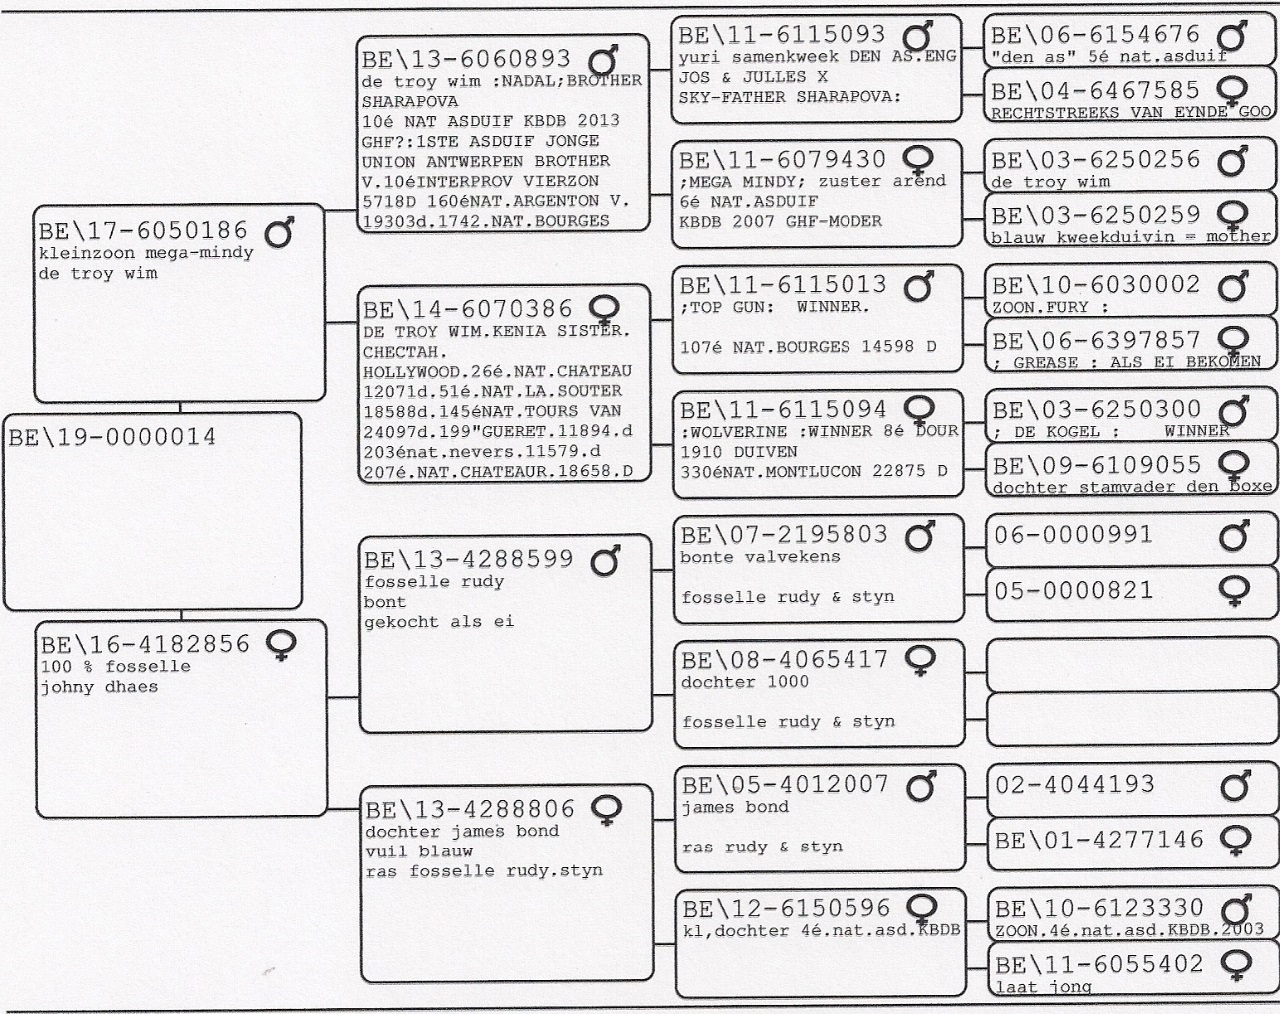 BE\19-0000014
BE\17-6050186 ♂
kleinzoon mega-mindy
de troy wim
BE\16-4182856 ♀
100 % fosselle
johny dhaes
BE\13-6060893 ♂
de troy wim :NADAL;BROTHER
SHARAPOVA
10é NAT ASDUIF KBDB 2013
GHF?:1STE ASDUIF JONGE
UNION ANTWERPEN BROTHER
V.10éINTERPROV VIERZON
5718D 160éNAT.ARGENTON V.
19303d.1742.NAT.BOURGES
BE\14-6070386 ♀
DE TROY WIM.KENIA SISTER.
CHECTAH.
HOLLYWOOD.26é.NAT.CHATEAU
12071d.51é.NAT.LA.SOUTER
18588d.145éNAT.TOURS VAN
24097d.199"GUERET.11894.d
203énat.nevers.11579.d
207é.NAT.CHATEAUR.18658.D
BE\13-4288599 ♂
fosselle rudy
bont
gekocht als ei
BE\13-4288806 ♀
dochter james bond
vuil blauw
ras fosselle rudy.styn
BE\11-6115093 ♂
yuri samenkweek DEN AS.ENG
JOS & JULLES X
SKY-FATHER SHARAPOVA:
BE\11-6079430 ♀
;MEGA MINDY; zuster arend
6é NAT.ASDUIF
KBDB 2007 GHF-MODER
BE\11-6115013 ♂
;TOP GUN: WINNER.
107é NAT.BOURGES 14598 D
BE\11-6115094 ♀
:WOLVERINE :WINNER 8é DOUR
1910 DUIVEN
330éNAT.MONTLUCON 22875 D
BE\07-2195803 ♂
bonte valvekens
fosselle rudy & styn
BE\08-4065417 ♀
dochter 1000
fosselle rudy & styn
BE\05-4012007 ♂
james bond
ras rudy & styn
BE\12-6150596 ♀
kl,dochter 4é.nat.asd.KBDB
BE\06-6154676 ♂
"den as" 5é nat.asduif
BE\04-6467585 ♀
RECHTSTREEKS VAN EYNDE GOO
BE\03-6250256 ♂
de troy wim
BE\03-6250259 ♀
blauw kweekduivin = mother
BE\10-6030002 ♂
ZOON.FURY :
BE\06-6397857 ♀
; GREASE : ALS EI BEKOMEN
BE\03-6250300 ♂
; DE KOGEL : WINNER
BE\09-6109055 ♀
dochter stamvader den boxe
06-0000991 ♂
05-0000821 ♀
02-4044193 ♂
BE\01-4277146 ♀
BE\10-6123330 ♂
ZOON.4é.nat.asd.KBDB.2003
BE\11-6055402 ♀
laat jong